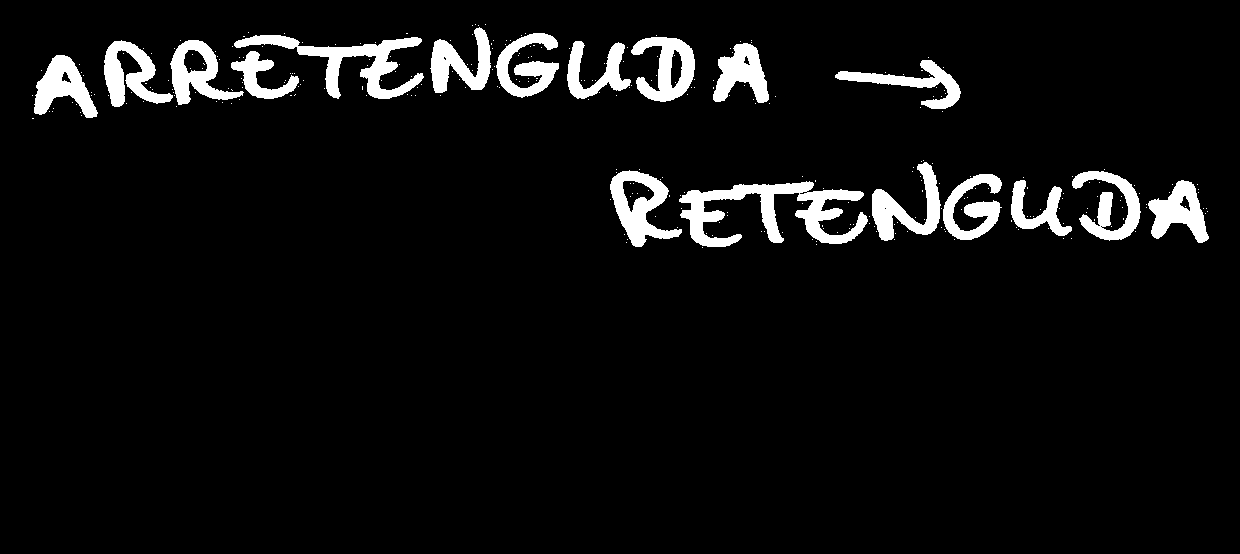 ARRETENGUDA →
RETENGUDA